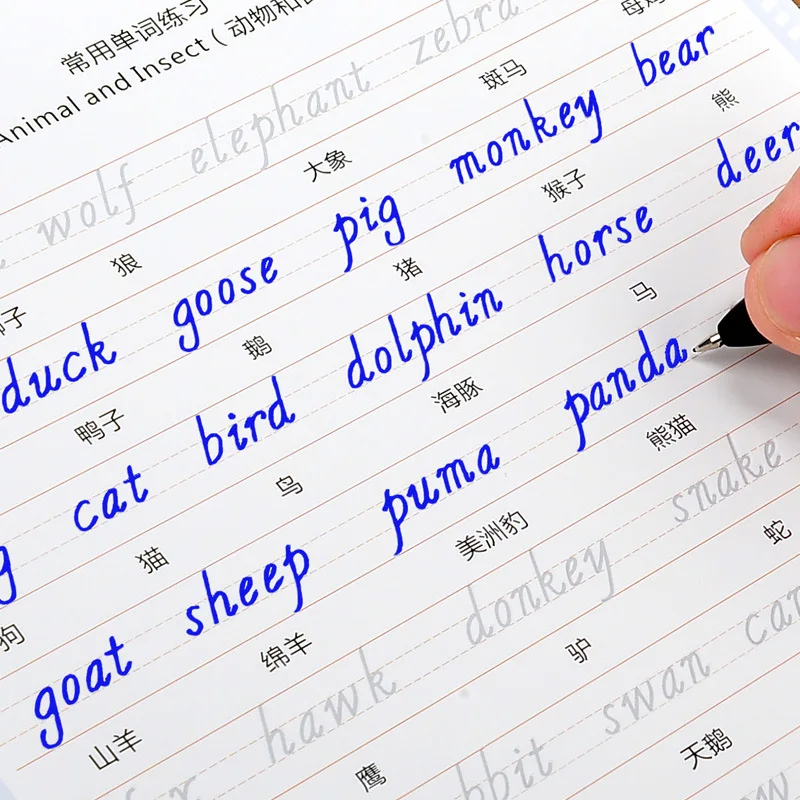 常用单词练习
Animal and Insect ( 动物和
wolf elephant zebra
子 狼 大象 斑马 母
duck goose pig monkey bear
鸭子 鹅 猪 猴子 熊
g cat bird dolphin horse deer
狗 猫 鸟 海豚 马
goat sheep puma panda
山羊 绵羊 美洲豹 熊猫
hawk donkey snake
鹰 驴 蛇
bbit swan ca
天鹅